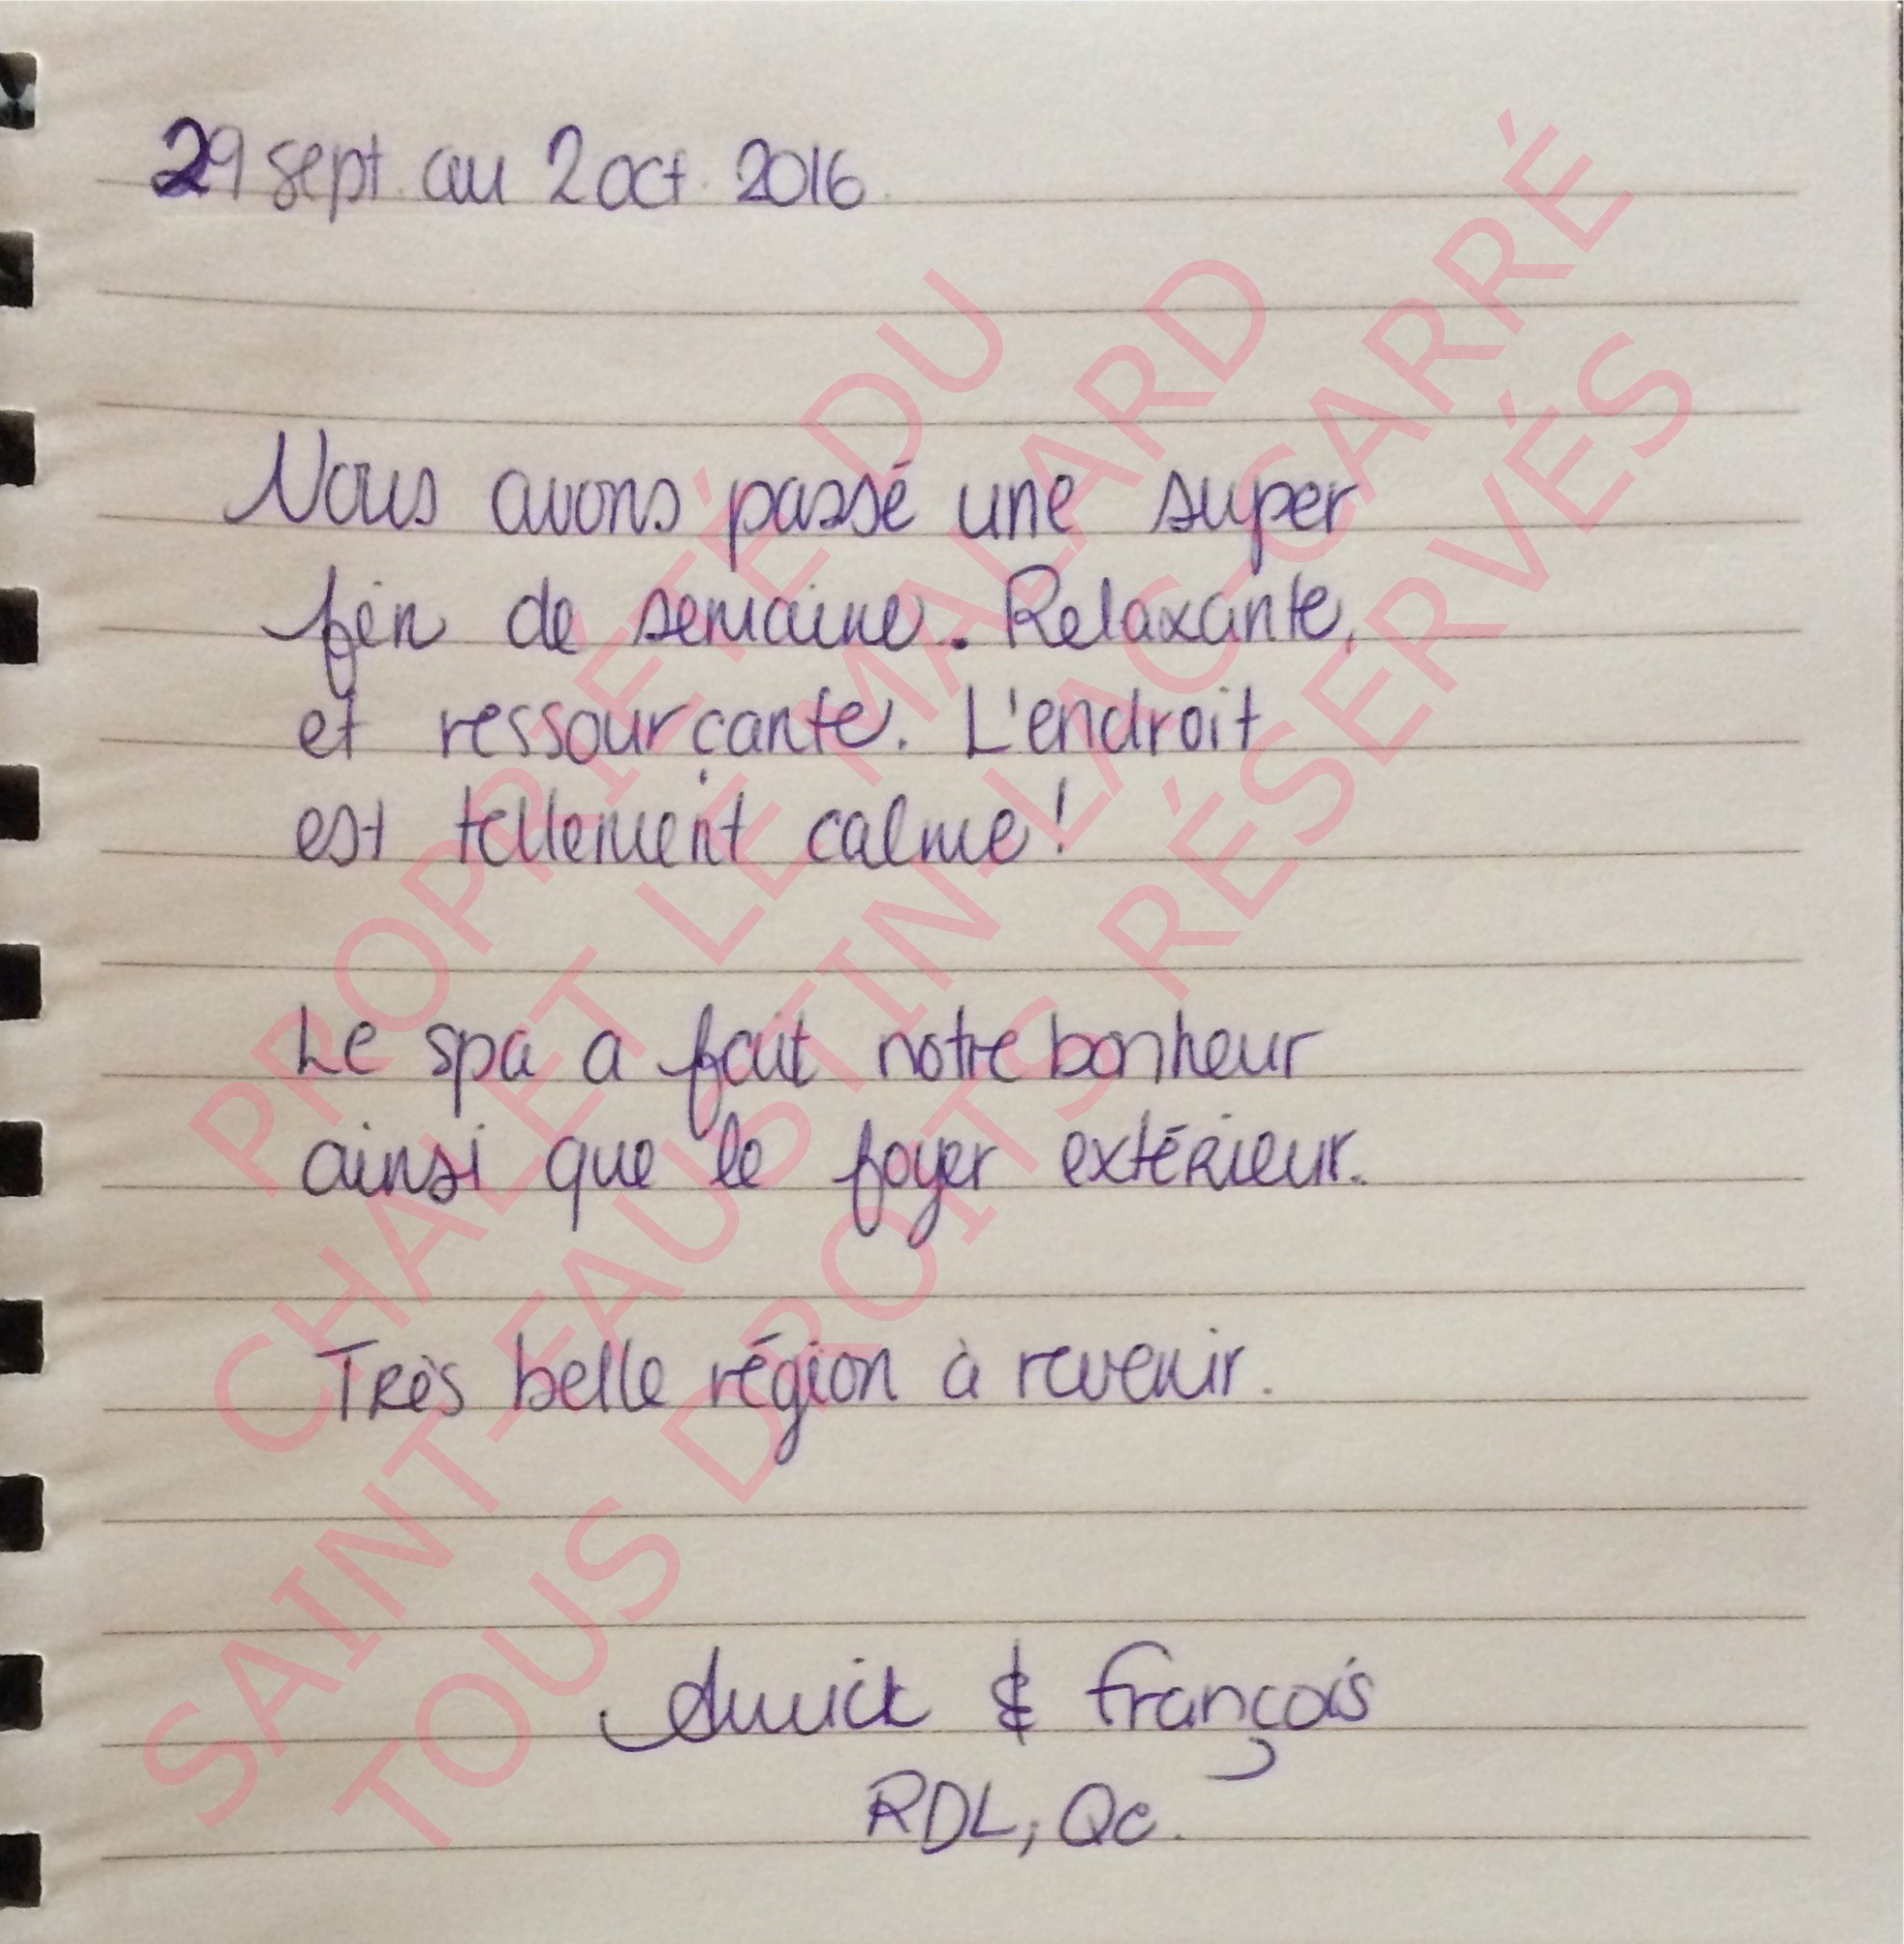 29 sept. au 2 oct. 2016
Nous avons passé une super
fin de semaine. Relaxante,
et ressourçante. L'endroit
est tellement calme!
Le spa a fait notre bonheur
ainsi que le foyer extérieur.
Très belle région à revenir.
& François
RDL, Qc.
PROPRIÉTÉ DU
CHALET LE MALARD
SAINT-FAUSTIN-LAC-CARRÉ
TOUS DROITS RÉSERVÉS